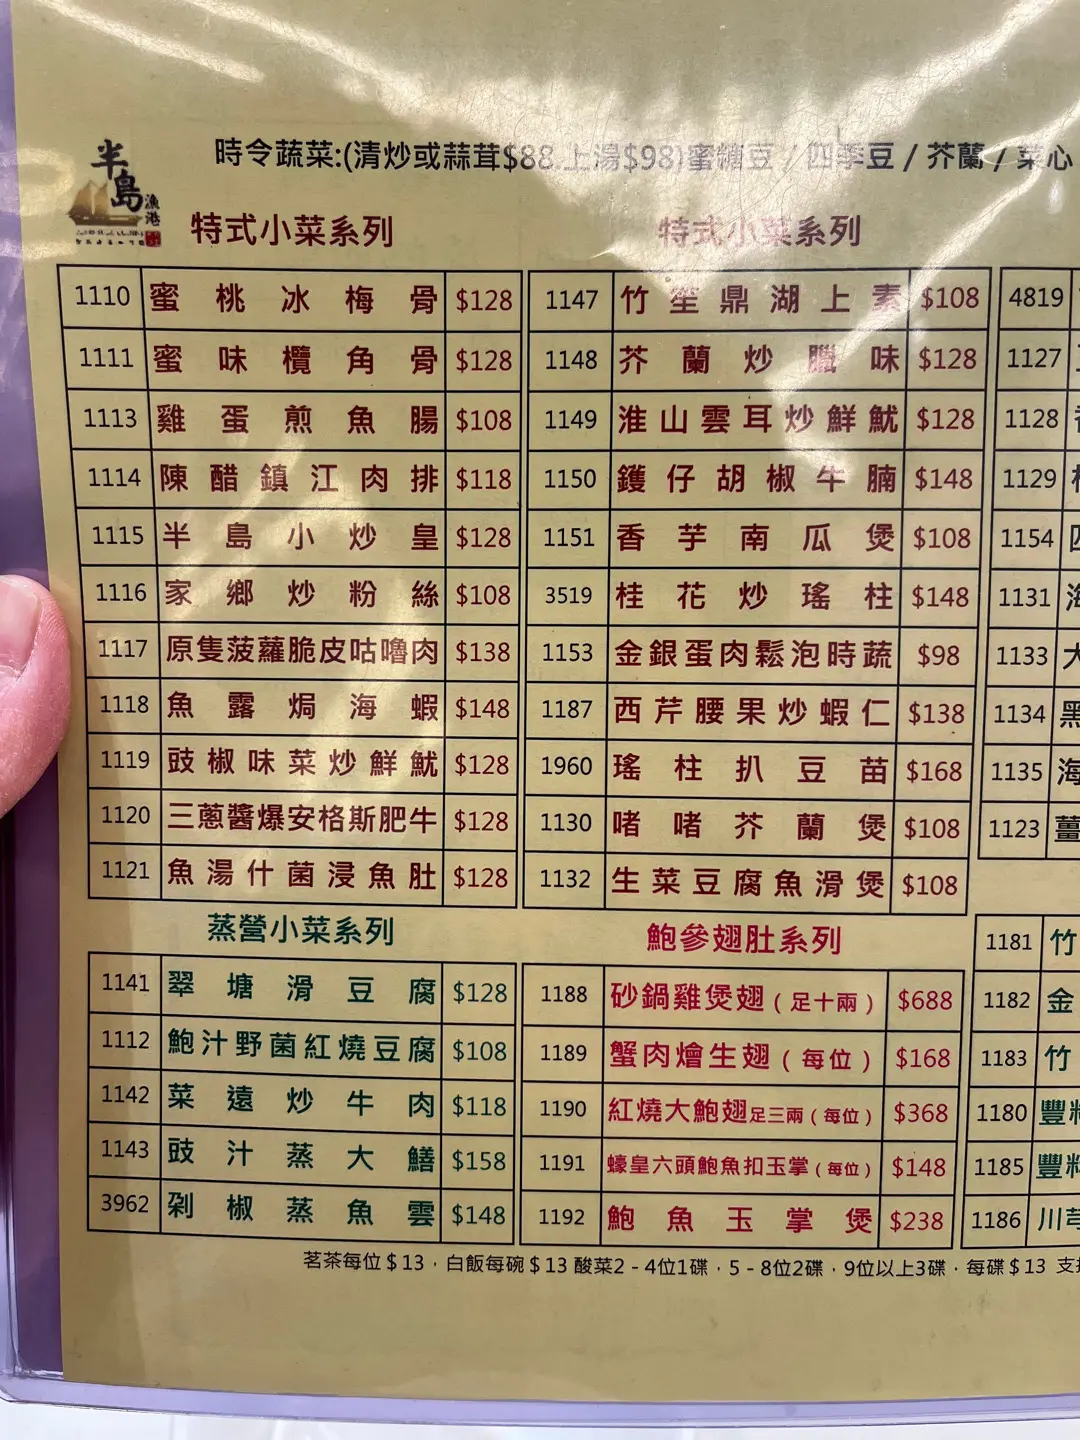 半島
漁港
時令蔬菜:(清炒或蒜茸$88.上湯$98)蜜糖豆 / 四季豆 / 芥蘭 / 菜心
特式小菜系列
1110 蜜桃冰梅骨 $128
1111 蜜味欖角骨 $128
1113 雞蛋煎魚腸 $108
1114 陳醋鎮江肉排 $118
1115 半島小炒皇 $128
1116 家鄉炒粉絲 $108
1117 原隻菠蘿脆皮咕嚕肉 $138
1118 魚露焗海蝦 $148
1119 豉椒味菜炒鮮魷 $128
1120 三蔥醬爆安格斯肥牛 $128
1121 魚湯什菌浸魚肚 $128
蒸營小菜系列
1141 翠塘滑豆腐 $128
1112 鮑汁野菌紅燒豆腐 $108
1142 菜遠炒牛肉 $118
1143 豉汁蒸大鱔 $158
3962 剁椒蒸魚雲 $148
特式小菜系列
1147 竹笙鼎湖上素 $108
1148 芥蘭炒臘味 $128
1149 淮山雲耳炒鮮魷 $128
1150 鑊仔胡椒牛腩 $148
1151 香芋南瓜煲 $108
3519 桂花炒瑤柱 $148
1153 金銀蛋肉鬆泡時蔬 $98
1187 西芹腰果炒蝦仁 $138
1960 瑤柱扒豆苗 $168
1130 啫啫芥蘭煲 $108
1132 生菜豆腐魚滑煲 $108
鮑參翅肚系列
1188 砂鍋雞煲翅(足十兩) $688
1189 蟹肉燴生翅(每位) $168
1190 紅燒大鮑翅足三兩(每位) $368
1191 蠔皇六頭鮑魚扣玉掌(每位) $148
1192 鮑魚玉掌煲 $238
4819
1127
1128
1129
1154
1131
1133 大
1134 黑
1135 海
1123 薑
1181 竹
1182 金
1183 竹
1180 豐
1185 豐
1186 川
茗茶每位$13．白飯每碗$13 酸菜2-4位1碟．5-8位2碟．9位以上3碟．每碟$13 支